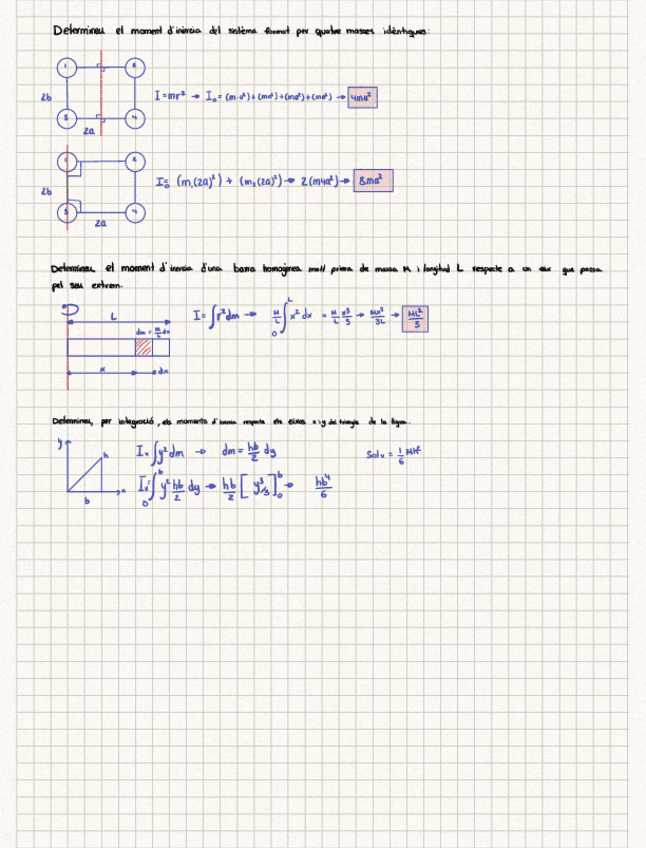 Determineu el moment d'inèrcia del sistema format per quatre masses idèntiques:
1 2
2b I=mr² → I₀ = (m·a²)+(ma²)+(ma²)+(ma²) → 4ma²
3 4
2a
1 2
2b I₀= (m₁(2a)²) + (m₃(2a)²) → 2(m4a²) → 8ma²
3 4
2a
Determineu el moment d'inèrcia d'una barra homogènea molt prima de massa M i longitud L respecte a un eix que passa
pel seu extrem.
L I = ∫r²dm → M/L ∫₀ᴸ x² dx = M/L x³/3 → Mx³/3L → ML²/3
dm = M/L dx
x dx
Determineu, per integració, els moments d'inèrcia respecte els eixos x i y del triangle de la figura.
y h I = ∫y² dm → dm = hb/2 dy Sol x = 1/6 Mh²
b x Iₓ = ∫₀ᵇ y² hb/2 dy → hb/2 [y³/3]₀ᵇ → hb⁴/6